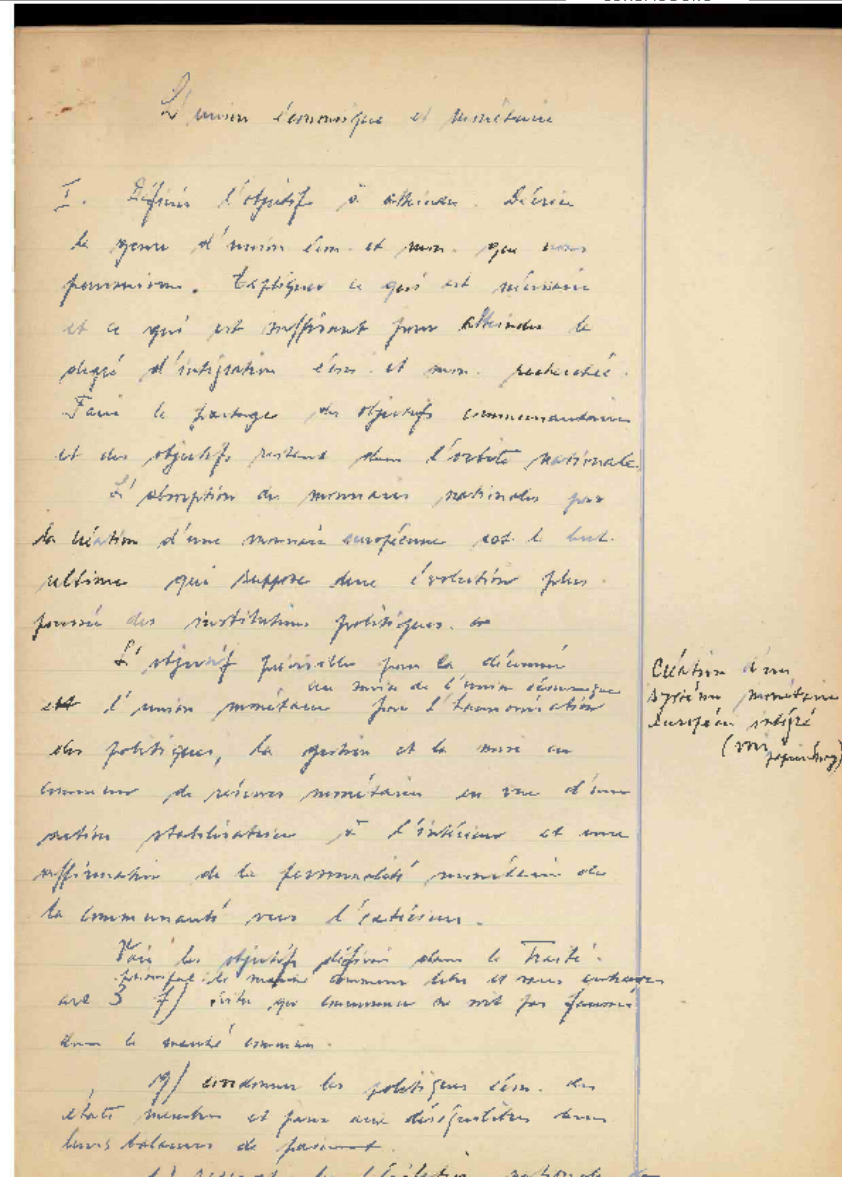 L'union économique et monétaire
I. Définir l'objectif à atteindre. Décrire
le genre d'union écon. et mon. que nous
poursuivons. Expliquer ce qui est nécessaire
et ce qui est suffisant pour atteindre le
degré d'intégration écon. et mon. recherché.
Faire le partage des objectifs communautaires
et des objectifs restant dans l'orbite nationale.
L'absorption des monnaies nationales par
la création d'une monnaie européenne est le but
ultime qui suppose une évolution plus
poussée des institutions politiques.
L'objectif prévisible pour la décennie
au sein de l'union économique
est l'union monétaire par l'harmonisation
des politiques, la gestion et la mise en
commun de réserves monétaires en vue d'une
action stabilisatrice à l'intérieur et une
affirmation de la personnalité monétaire de
la communauté vers l'extérieur.
Création d'un
système monétaire
européen intégré
(voir
Voir les objectifs définis dans le Traité.
principal: le marché commun libre et sans entraves
art 3 f) éviter que concurrence ne soit pas faussée
dans le marché commun.
g) coordonner les politiques écon. des
états membres et parer aux déséquilibres dans
leurs balances de paiement.
législation nationale